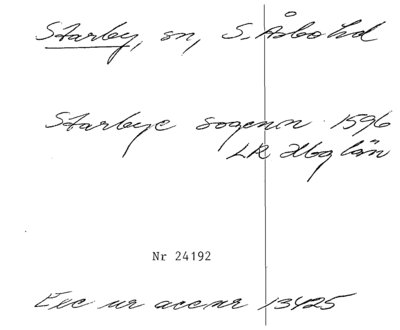 Starby, sn, S. Åsbo hd
Starbye sogenn 1596
LR Hbg län
Nr 24192
Exc ur accnr 13425